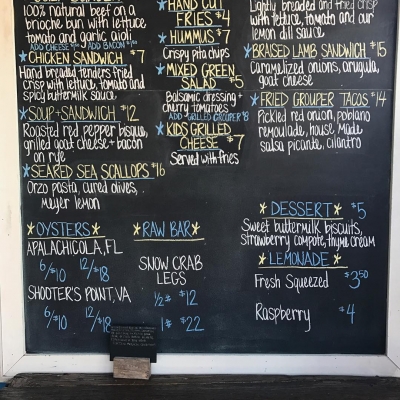 100% natural beef on a
brioche bun with lettuce
tomato and garlic aioli
ADD CHEESE ADD BACON
CHICKEN SANDWICH $7
Hand breaded tenders fried
crisp with lettuce, tomato and
spicy buttermilk sauce
SOUP + SANDWICH $12
Roasted red pepper bisque,
grilled goat cheese + bacon
on rye
SEARED SEA SCALLOPS $16
Orzo pasta, cured olives,
meyer lemon
HAND CUT
FRIES $4
HUMMUS $7
Crispy pita chips
MIXED GREEN
SALAD $5
Balsamic dressing +
cherry tomatoes
ADD GRILLED GROUPER $8
KIDS GRILLED
CHEESE $7
Served with fries
Lightly breaded and fried crisp
with lettuce, tomato and our
lemon dill sauce
BRAISED LAMB SANDWICH $15
Caramelized onions, arugula,
goat cheese
FRIED GROUPER TACOS $14
Pickled red onion, poblano
remoulade, house made
salsa picante, cilantro
OYSTERS
APALACHICOLA, FL
6/$10 12/$18
SHOOTER'S POINT, VA
6/$10 12/$18
RAW BAR
SNOW CRAB
LEGS
1/2# $12
1# $22
DESSERT $5
Sweet buttermilk biscuits,
strawberry compote, thyme cream
LEMONADE
Fresh Squeezed $3.50
Raspberry $4